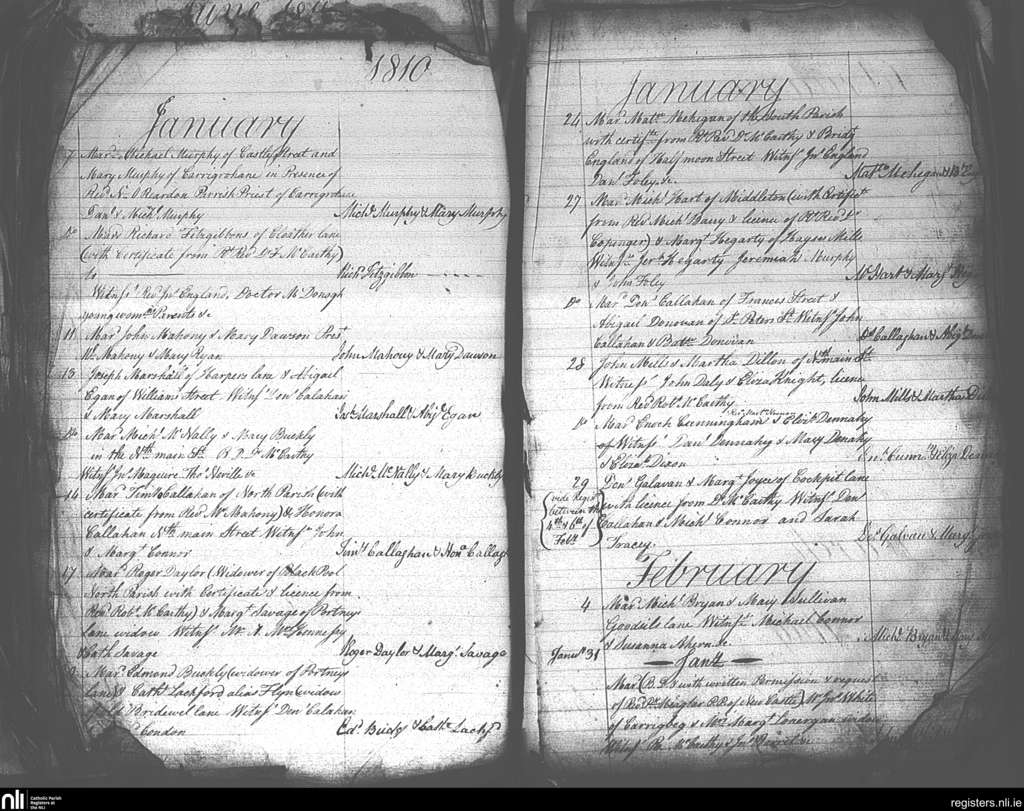 1810
January
7 Mar.d Michael Murphy of Castle Street and
Mary Murphy of Carrigrohane in Presence of
Rev.d N. O Reardon Parrish Priest of Carrigrohane
Dan.l & Mich.l Murphy
Mich.l Murphy & Mary Murphy
D.o Mar.d Richard Fitzgibbons of Cloather lane
(with Certificate from R.t Rev.d D.r F. M.c Carthy)
to
Rich.d Fitzgibbon
Witness Rev.d Jn.o England, Doctor M.c Donogh
young wom.s Parents &c
11 Mar.d John Mahony & Mary Dawson Pres.t
W.m Mahony & Mary Ryan
John Mahony & Mary Dawson
13 Joseph Marshall of Harpers lane & Abigail
Egan of Williams Street Witns.s Den.s Calahan
& Mary Marshall
Jos.h Marshall & Abij.l Egan
D.o Mar.d Mich.l M.c Nally & Mary Buckly
in the N.th main S.t M.c Carthy
Witns.s Jn.o Maguire Tho.s Neville &c
Mich.l M.c Nally & Mary Buckly
14 Mar.d Tim.y Callahan of North Parish (with
certificate from Rev.d M.r Mahony) & Honora
Callahan N.th main Street Witns.s John
& Marg.t Connor
Tim.y Callaghan & Hon.a Callag
17 Mar.d Roger Daylor (Widower of Black Pool
North Parish with Certificate & Licence from
Rev.d Rob.t M.c Carthy) & Marg.t Savage of Portneys
Lane widow Witns.s M.r A. Hennessy
& Cath. Savage
Roger Daylor & Marg.t Savage
Mar.d Edmond Buckly (widower of Portneys
Lane) & Cath.e Lackford alias Flyn (widow
Bridewel lane Witns.s Den.s Calahan
Condon
Ed.d & Cath.e Lackf.d
January
24 Mar.d Matt.w Mehigan of the South Parish
with certif.te from R.t Rev.d D.r M.c Carthy & Bridg.t
England of Half moon Street Witns.s Jn.o England
Dan.l Foley &c.
Mat.w Mehegan &
27 Mar.d Mich.l Hart of Middleton (with Certificate
from Rev.d Mich.l Barry & licence of R.t Rev.d D.r
Copinger) & Marg.t Hegarty of Hayses Mills
Witns.s Jer.h Hegarty Jeremiah Murphy
& John Foley
M.l Hart & Marg.t
D.o Mar.d Den.s Callahan of Frances Street &
Abigail Donovan of S.t Peters S.t Witns.s John
Callahan & Bart.w Donovan
D.s Callaghan & Abig.l Don
28 John Mills & Martha Dillon of N.th main S.t
Witness John Daly & Eliza Knight, licence
from Rev.d Rob.t M.c Carthy
John Mills & Martha Di
D.o Mar.d Enoch Cunningham & Eliz.th Dennahy
of Witness Dan.l Dennahy & Mary Denahy
& Eliza.th Dixon
29 Den.s Galavan & Marg.t Joyce of Cockpit lane
with licence from D.r M.c Carthy Witns.s Den.s
Callahan & Mich.l Connor and Sarah
Tracey.
(vide Regist.r
between the
4th & 6th of
Feb.y)
De.s Galvan & Marg.t
February
4 Mar.d Mich.l Bryan & Mary Sullivan
Goodsils lane Witns.s Michael Connor
& Susanna Ahern &c.
Mich.l Bryan & Mary
Janu.y 31
Jan.y
Mar.d (B. D. F with written Permission & request
of Rev.d Meighar P.P. of New Castle) M.r Jn.o White
of Carrigbeg & M.rs Marg.t Lonergan widow
Witns.s M.c Carthy & Jn.o
nli
Catholic Parish
Registers at
the NLI
registers.nli.ie